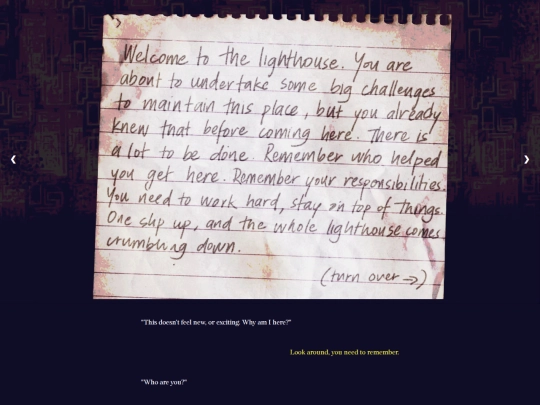 Welcome to the lighthouse. You are
about to undertake some big challenges
to maintain this place, but you already
knew that before coming here. There is
a lot to be done. Remember who helped
you get here. Remember your responsibilities.
You need to work hard, stay on top of things.
One slip up, and the whole lighthouse comes
crumbling down.
(turn over →)
"This doesn't feel new, or exciting. Why am I here?"
Look around, you need to remember.
"Who are you?"